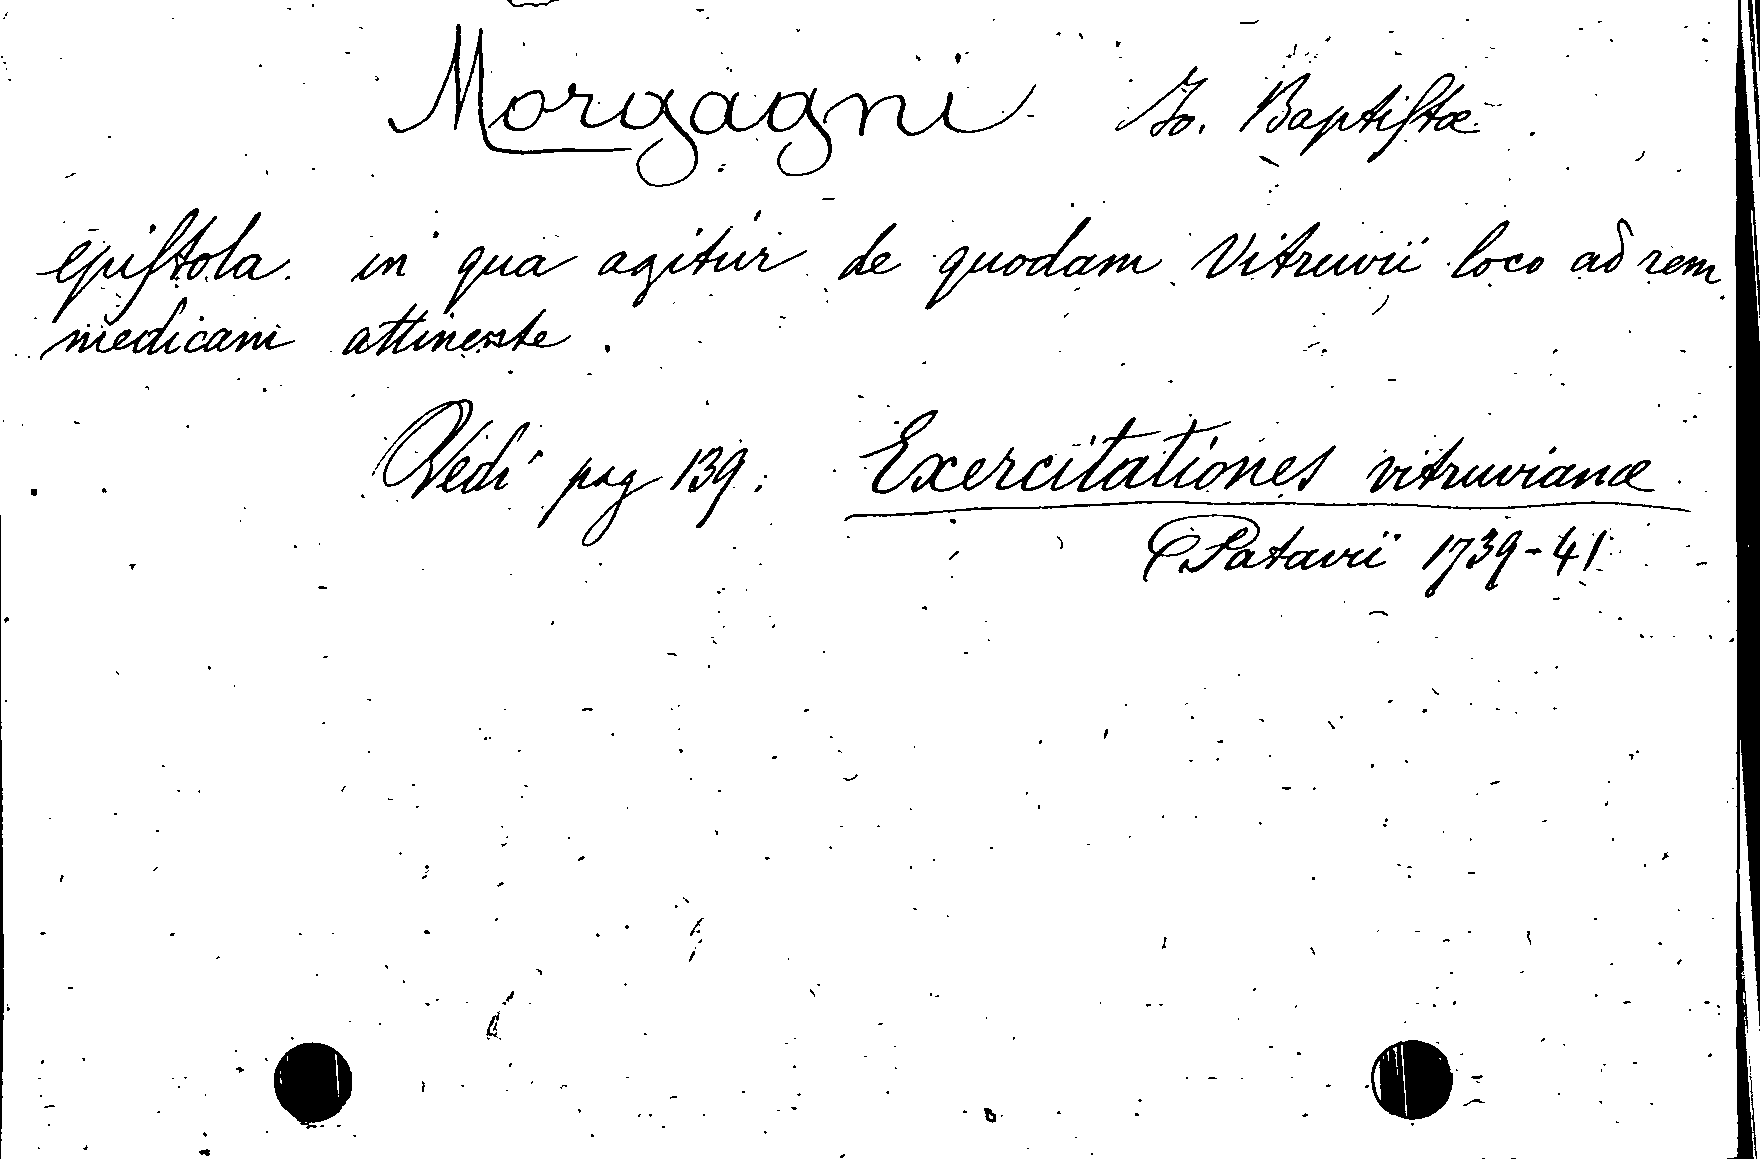 Morgagni Jo. Baptiſtæ
epiſtola in qua agitur de quodam Vitruvii loco ad rem
medicam attinente.
Vedi pag 139. Exercitationes vitruvianæ
Patavii 1739-41